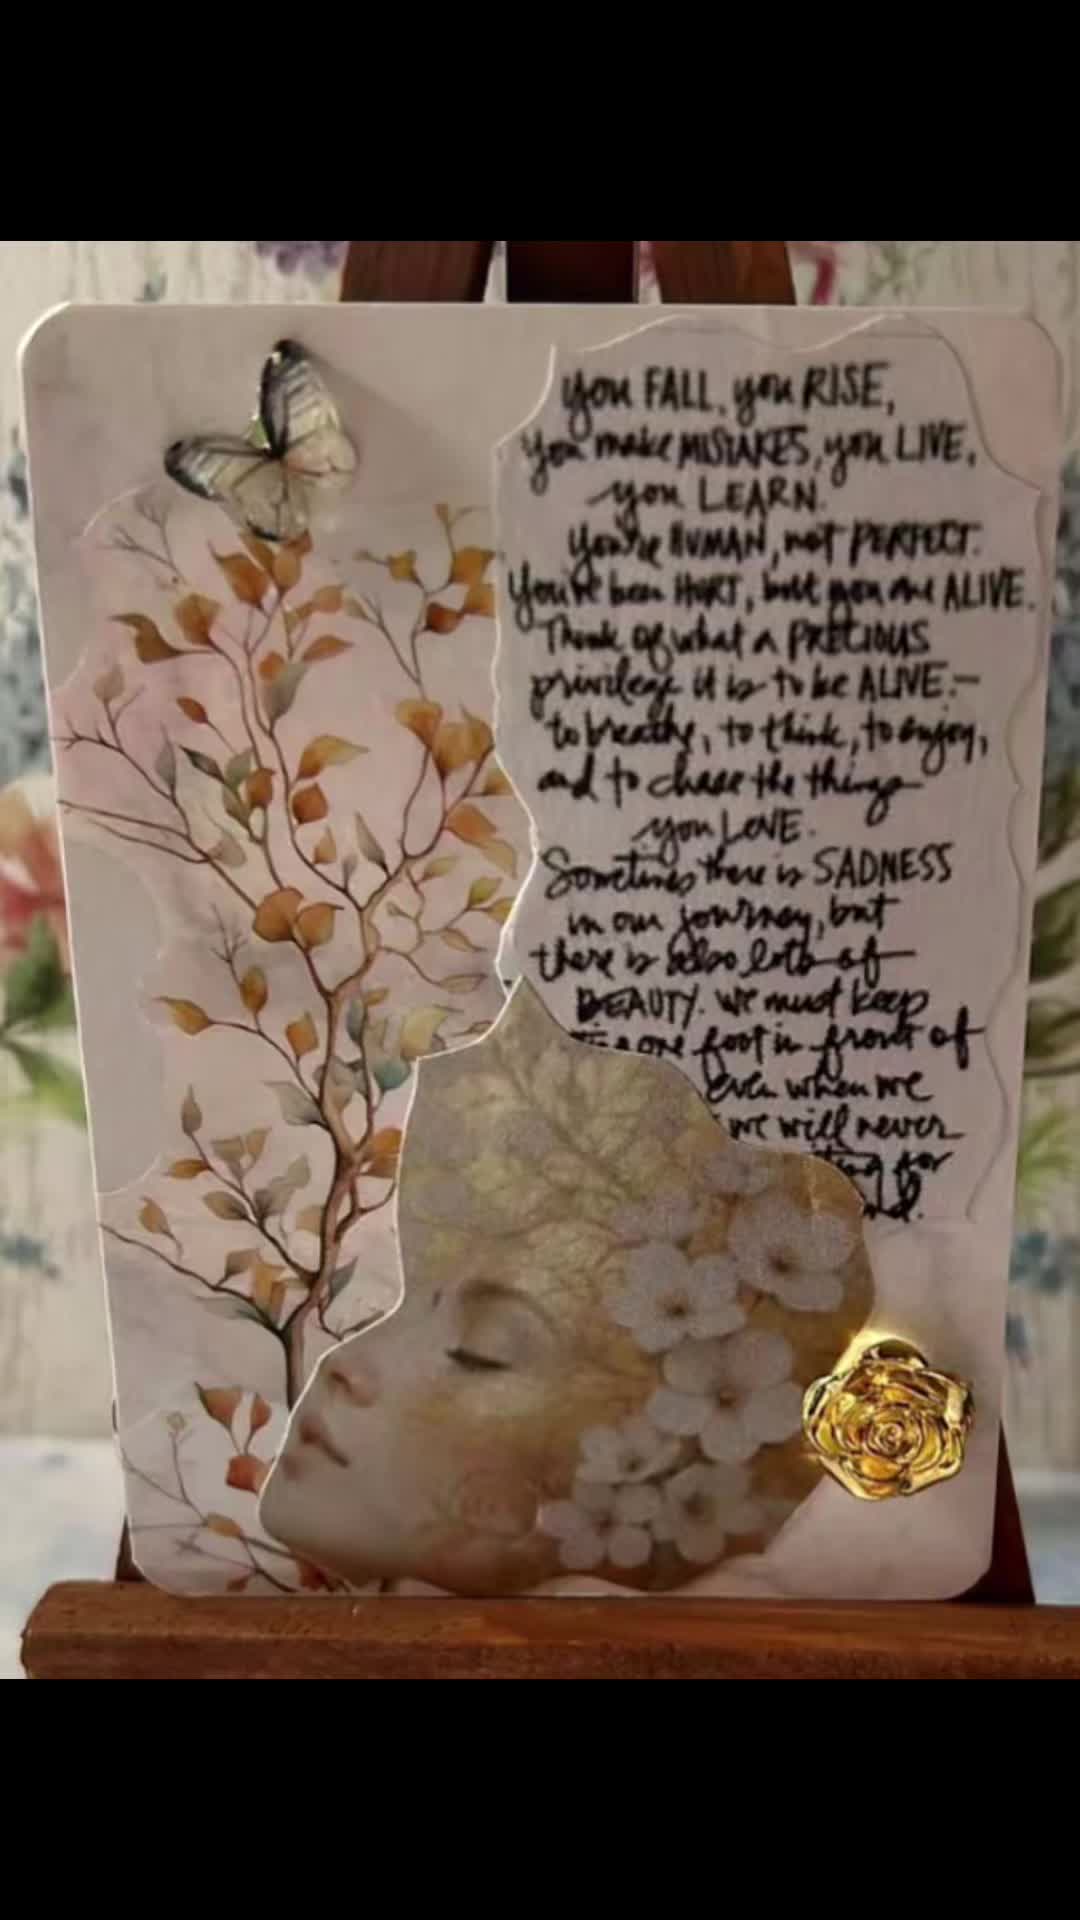 you FALL, you RISE,
you make MISTAKES, you LIVE,
you LEARN.
You're HUMAN, not PERFECT.
You've been HURT, but you are ALIVE.
Think of what a PRECIOUS
privilege it is to be ALIVE –
to breathe, to think, to enjoy,
and to chase the things
you LOVE.
Sometimes there is SADNESS
in our journey, but
there is also lots of
BEAUTY. We must keep
one foot in front of
even when we
we will never
for